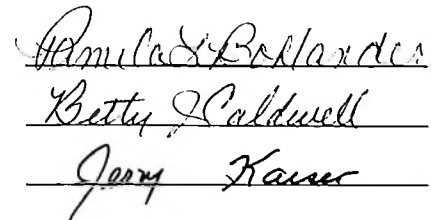 Pamela L Bollander
Betty J Caldwell
Jerry Kaiser